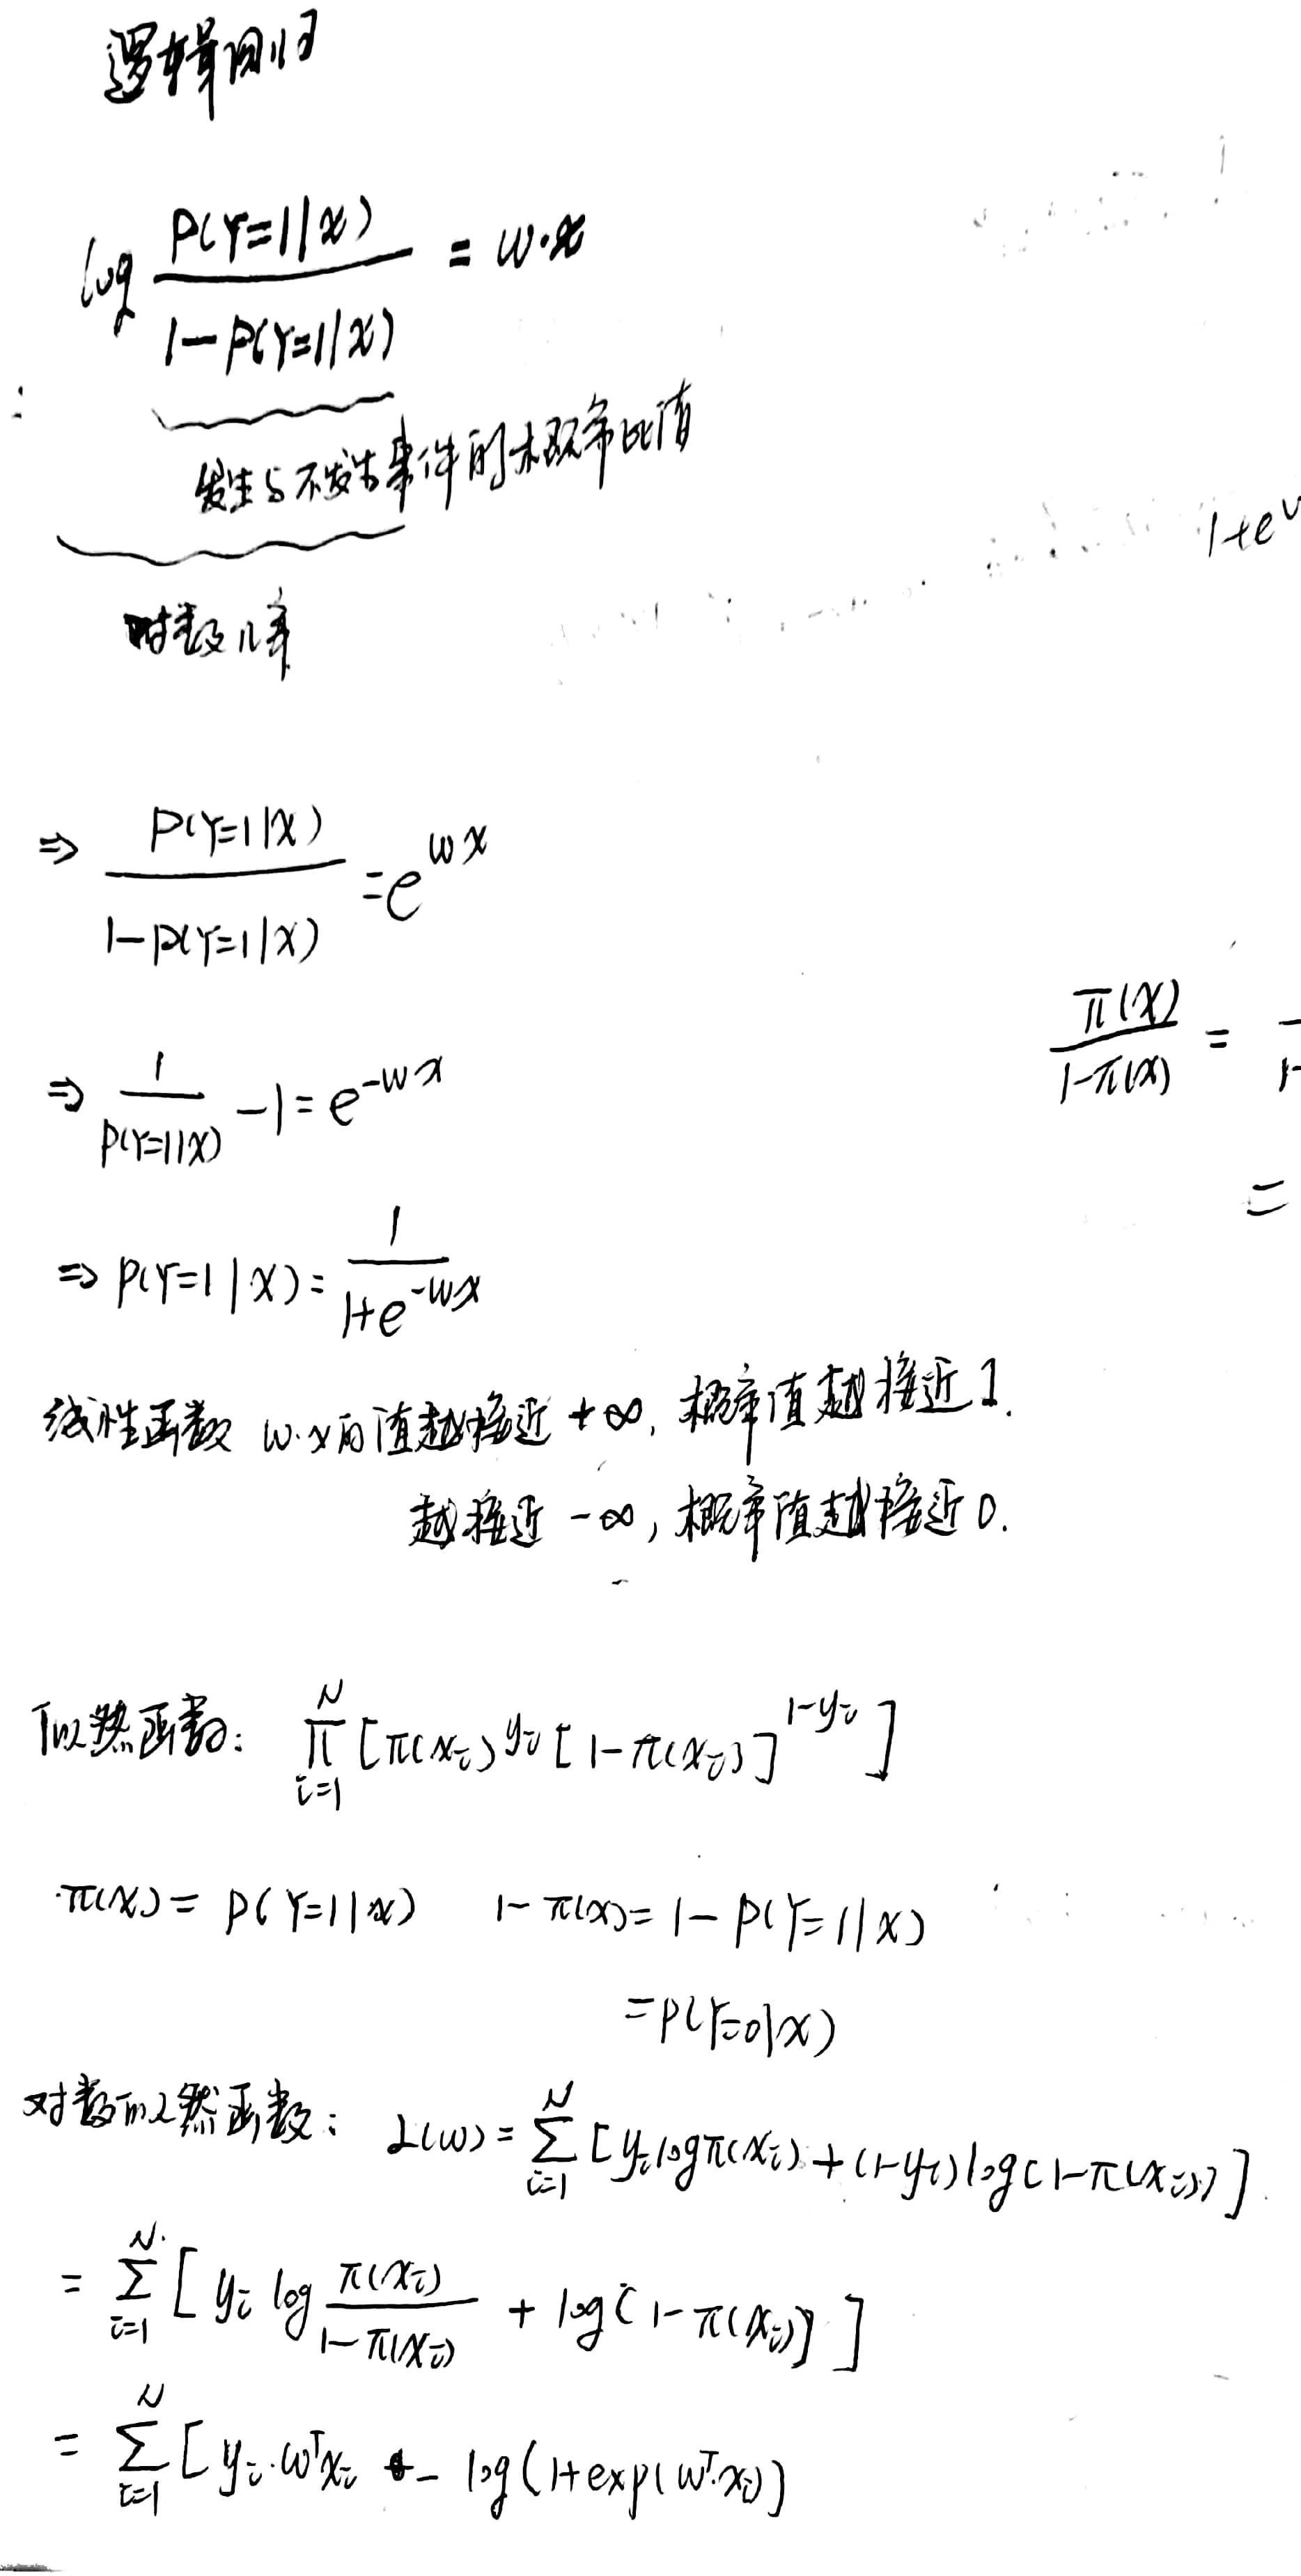 逻辑回归
log P(Y=1|x) / 1-P(Y=1|x) = w·x
发生与不发生事件的概率比值
1+e
对数几率
⇒ P(Y=1|x) / 1-P(Y=1|x) = e^{wx}
π(x) / 1-π(x) =
⇒ 1 / P(Y=1|x) - 1 = e^{-wx}
=
⇒ P(Y=1|x) = 1 / 1+e^{-wx}
线性函数 w·x的值越接近 +∞, 概率值越接近1.
越接近 -∞, 概率值越接近0.
似然函数: ∏_{i=1}^{N} [π(x_i)^{y_i} [1-π(x_i)]^{1-y_i}]
π(x) = P(Y=1|x) 1-π(x) = 1-P(Y=1|x)
=P(Y=0|x)
对数似然函数: L(w) = ∑_{i=1}^{N} [y_i logπ(x_i) + (1-y_i) log(1-π(x_i))]
= ∑_{i=1}^{N} [y_i log π(x_i) / 1-π(x_i) + log(1-π(x_i))]
= ∑_{i=1}^{N} [y_i·w^T x_i - log(1+exp(w^T·x_i)]